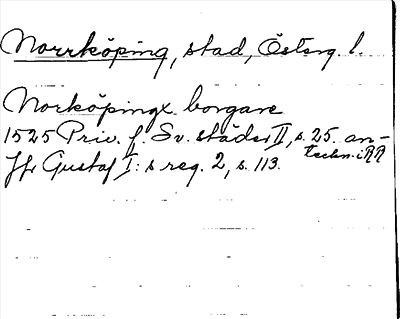 Norrköping, stad, Österg. l.
Norköpingx borgare
1525 Priv. f. Sv. städer II, s. 25. an-
teckn. i RR
Jfr Gustaf I:s reg. 2, s. 113.